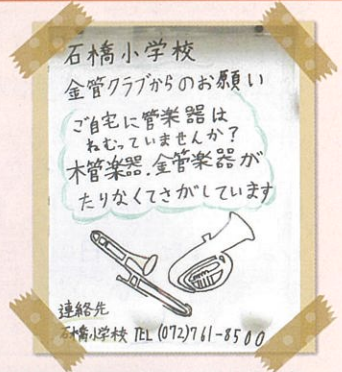 石橋小学校
金管クラブからのお願い
ご自宅に管楽器は
ねむっていませんか?
木管楽器.金管楽器が
たりなくてさがしています
連絡先
石橋小学校 TEL (072)761-8500